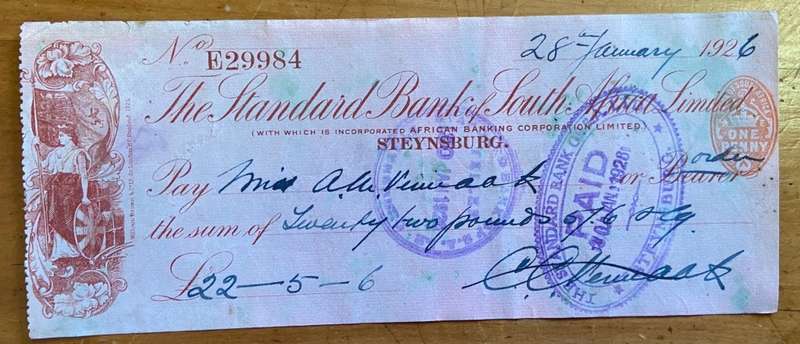 No E29984
28 January 1926
The Standard Bank of South Africa Limited
(WITH WHICH IS INCORPORATED AFRICAN BANKING CORPORATION LIMITED.)
STEYNSBURG.
ONE PENNY
Pay Miss A. M. Vermaak or Bearer order
the sum of Twenty two pounds 5/6 stg
£22-5-6
C C Vermaak
THE STANDARD BANK STEYNSBURG.
PAID